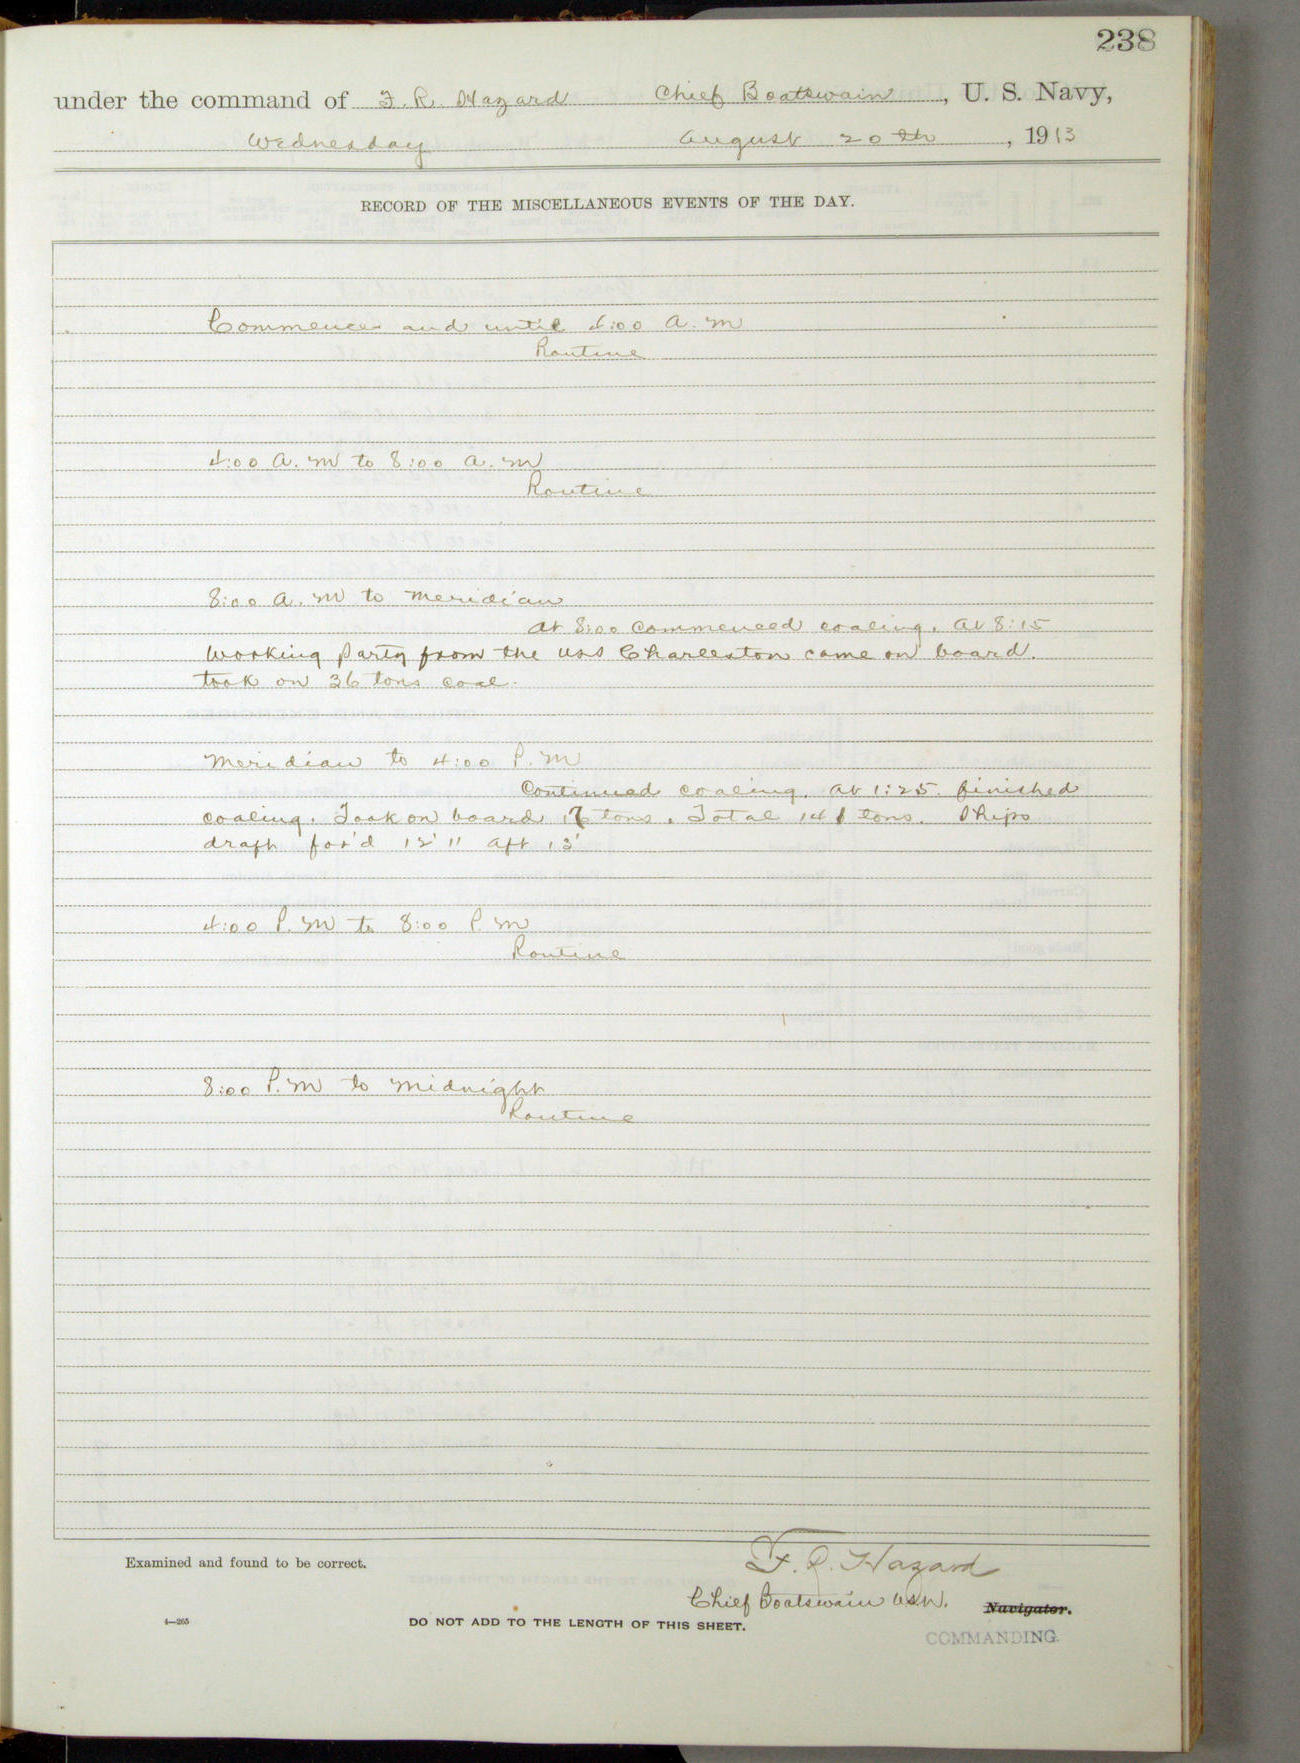 238
under the command of F. R. Hazard Chief Boatswain, U. S. Navy,
Wednesday August 20th, 1913
RECORD OF THE MISCELLANEOUS EVENTS OF THE DAY.
Commences and until 4:00 A.M
Routine
4:00 A.M to 8:00 A.M
Routine
8:00 A.M to Meridian
At 8:00 Commenced coaling. At 8:15
Working party from the USS Charleston came on board.
took on 36 tons coal.
Meridian to 4:00 P.M
Continued coaling. At 1:25 finished
coaling. Took on board tons. Total tons. Ships
draft for'd 12' " aft 13'
4:00 P.M to 8:00 P.M
Routine
8:00 P.M to Midnight
Routine
Examined and found to be correct.
F. R. Hazard
Chief Boatswain USN. Navigator.
4—265
DO NOT ADD TO THE LENGTH OF THIS SHEET.
COMMANDING.